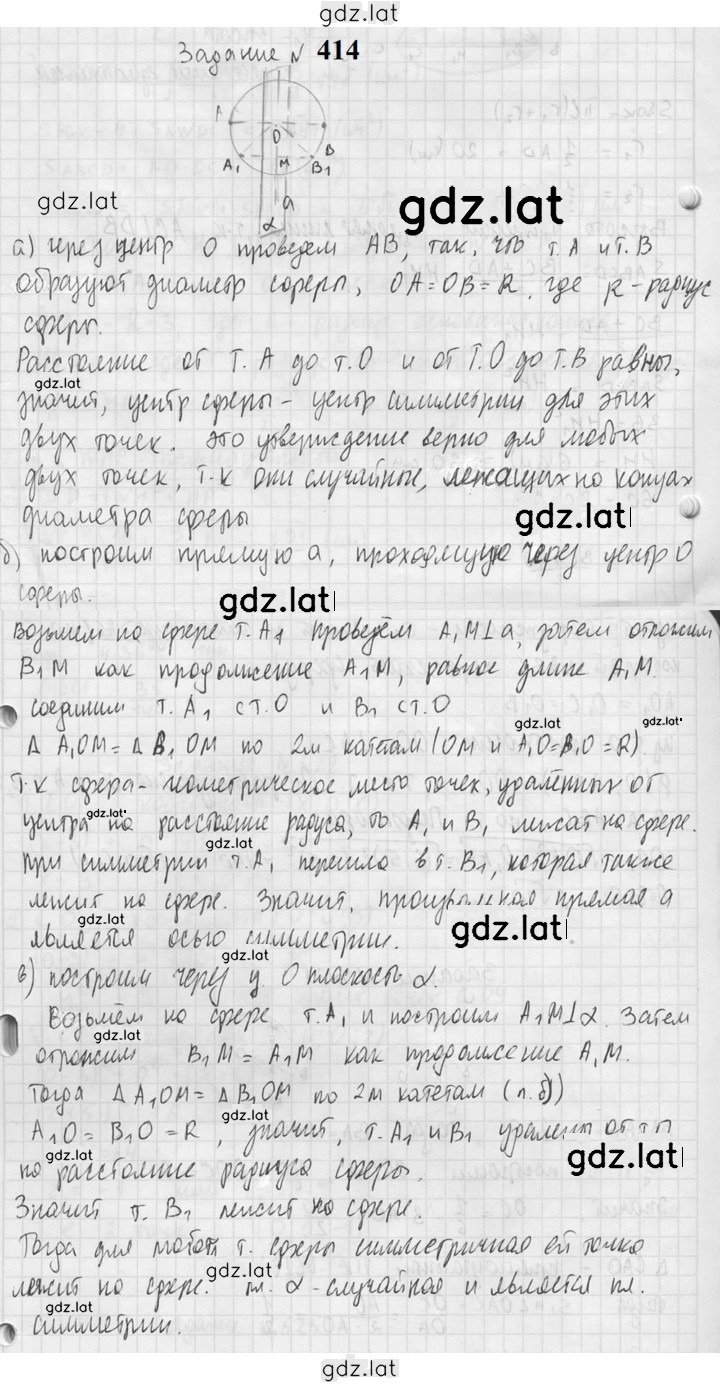 gdz.lat
Задание N 414
A
O
B
A₁
M
B₁
a
α
gdz.lat
gdz.lat
а) через центр O проведем AB, так, что т. A и т. B
образуют диаметр сферы, OA=OB=R, где R-радиус
сферы.
Расстояние от т. A до т. O и от т. O до т. B равны,
gdz.lat
значит, центр сферы - центр симметрии для этих
двух точек. Это утверждение верно для любых
двух точек, т.к они случайные, лежащих на концах
диаметра сферы
gdz.lat
б) построим прямую a, проходящую через центр O
сферы.
gdz.lat
Возьмем на сфере т. A₁ проведём A₁M⊥a, затем отложим
B₁M как продолжение A₁M, равное длине A₁M.
соединим т. A₁ с т. O и B₁ с т. O
gdz.lat
gdz.lat
Δ A₁OM = Δ B₁OM по 2м катетам (OM и A₁O=B₁O=R)
т.к сфера - геометрическое место точек, удалённых от
gdz.lat
центра на расстояние радиуса, то A₁ и B₁ лежат на сфере.
gdz.lat
При симметрии т. A₁ перешла в т. B₁, которая также
лежит на сфере. Значит, прямая a
gdz.lat
gdz.lat
является осью симметрии.
gdz.lat
в) построим через ц. O плоскость α.
Возьмём на сфере т. A₁ и построим A₁M⊥α. Затем
gdz.lat
отложим B₁M = A₁M как продолжение A₁M.
Тогда Δ A₁OM = Δ B₁OM по 2м катетам (п. б))
gdz.lat
A₁O = B₁O = R, значит, т. A₁ и B₁ удалены от
gdz.lat
на расстояние радиуса сферы.
gdz.lat
Значит т. B₁ лежит на сфере.
Тогда для любой т. сферы симметричная ей точка
gdz.lat
лежит на сфере. пл. α - случайная и является пл.
gdz.lat
симметрии.
gdz.lat